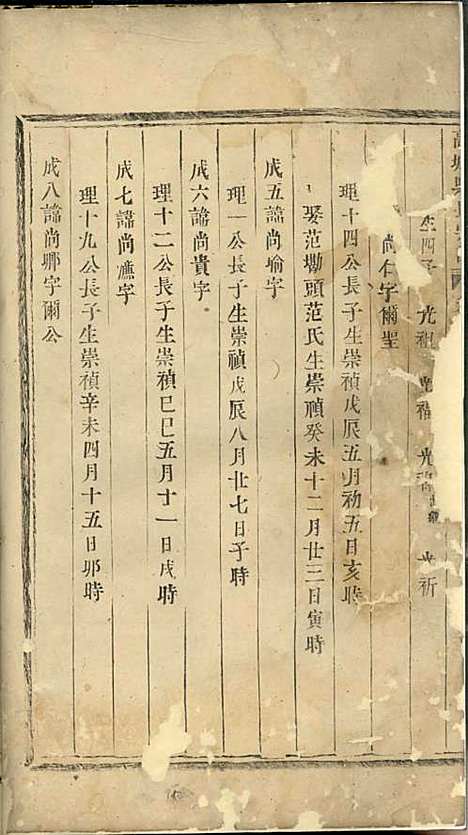 生四子 光祖 光
尚仁字爾聖
理十四公長子生崇禎戊辰五月初五日亥時
娶范墈頭范氏生崇禎癸未十二月廿三日寅時
成五諱尚瑜字
理一公長子生崇禎戊辰八月廿七日子時
成六諱尚貴字
理十二公長子生崇禎己巳五月十一日戌時
成七諱尚廉字
理十九公長子生崇禎辛未四月十五日卯時
成八諱尚卿字爾公